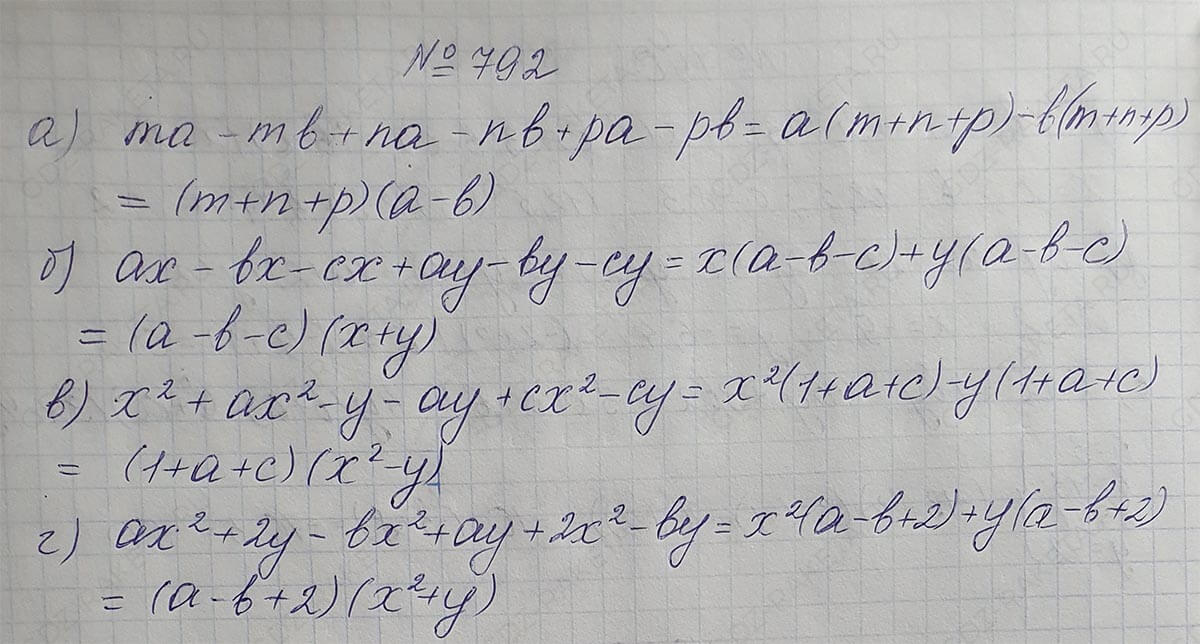 № 792
а) ma - mв + na - nв + pa - pв = a(m+n+p) - в(m+n+p)
= (m+n+p)(a-в)
б) ax - вx - cx + ay - вy - cy = x(a-в-c) + y(a-в-c)
= (a-в-c)(x+y)
в) x² + ax² - y - ay + cx² - cy = x²(1+a+c) - y(1+a+c)
= (1+a+c)(x²-y)
г) ax² + 2y - вx² + ay + 2x² - вy = x²(a-в+2) + y(a-в+2)
= (a-в+2)(x²+y)